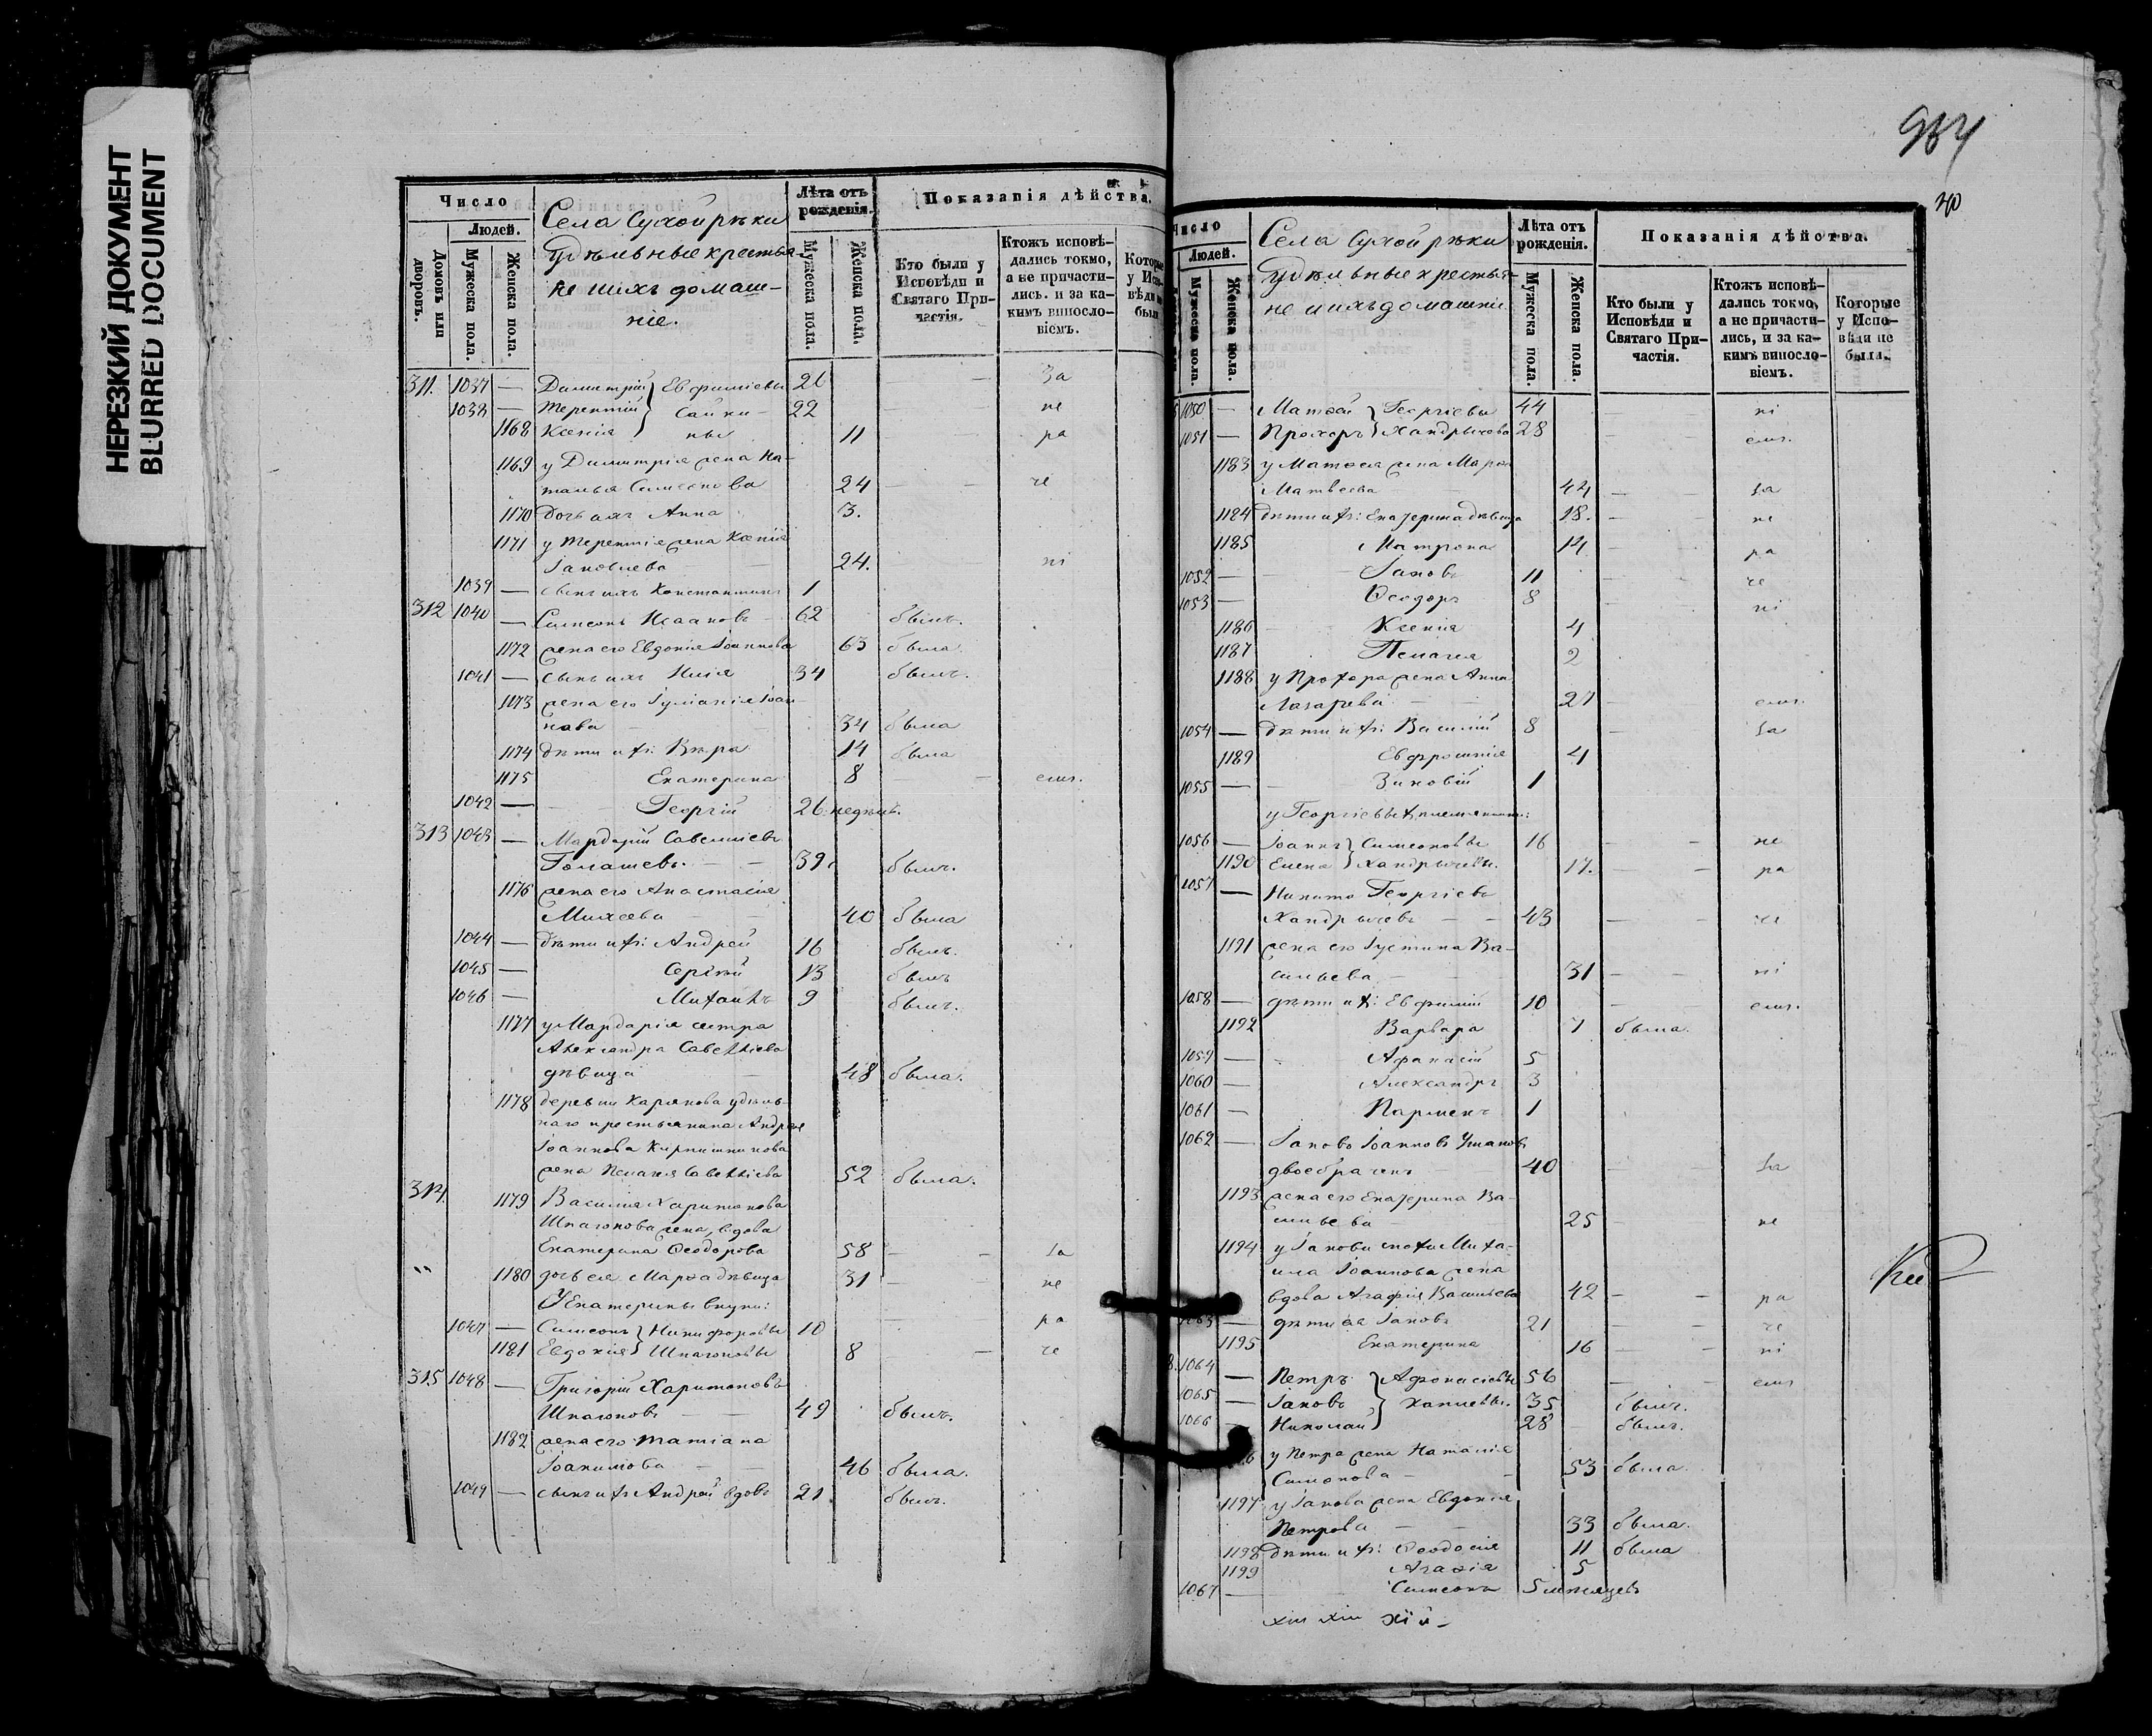 НЕРЕЗКИЙ ДОКУМЕНТ
BLURRED DOCUMENT
Число
Людей.
Домовъ или дворовъ.
Мужеска пола.
Женска пола.
Села Сухой рѣки
удѣльные крестья-
не и ихъ домаш-
ніе.
Лѣта отъ рожденія.
Мужеска пола.
Женска пола.
Показанія дѣйства.
Кто были у Исповѣди и Святаго При-частія.
Ктожъ исповѣ-дались токмо, а не причасти-лись. и за ка-кимъ винословіемъ.
311. 1037 — Димитрій } Ефиміевы 26 — за
1038 — Терентій } Сайки- 22 — не
1168 Ксенія } ны 11 ра
1169 у Димитрія жена На-
талья Симеонова 24 — — че
1170 дочь ихъ Анна 3.
1171 у Терентія жена Ксенія
Іаковлева — — 24. ні
1039 — сынъ ихъ Константинъ 1
312 1040 — Симеонъ Исааковъ 62 былъ.
1172 жена его Евдокія Іоаннова 63 была.
1041 — сынъ ихъ Илія 34 былъ.
1173 жена его Іуліанія Іоан-
нова 34 была
1174 дѣти ихъ: Вѣра 14 была
1175 Екатерина 8 — — емъ.
1042 — Георгій 26 недѣль.
313 1043 — Мардарій Савеліевъ
Голашевъ. — — 39. былъ.
1176 жена его Анастасія
Михеева — — 40 была
1044 — дѣти ихъ: Андрей 16 былъ.
1045 — Сергій 13 былъ
1046 — Михаилъ 9 былъ.
1177 у Мардарія сестра
Александра Савелліева
дѣвица — 48 была.
1178 деревни Карянова удѣль-
наго крестьянина Андрея
Іоаннова
жена Пелагія Савелліева 52 была.
314. 1179 Василія Харитонова
Шпагонова жена, вдова
Екатерина Ѳеодорова 58 — — за
" 1180 дочь ея Марѳа дѣвица 31 — не
У Екатерины внуки:
1047 — Симеонъ } Никифоровы 10 ра
1181 Евдокія } Шпагоновы 8 — — че
315 1048 — Григорій Харитоновъ
Шпагоновъ — — 49 былъ.
1182 жена его Татіана
Іоакимова — — 46 была.
1049 — сынъ ихъ Андрей вдовъ 21. былъ.
984
Число
Людей.
Мужеска пола.
Женска пола.
Села Сухой рѣки
удѣльные крестья-
не и ихъ домашніе.
Лѣта отъ рожденія.
Мужеска пола.
Женска пола.
Показанія дѣйства.
Кто были у Исповѣди и Святаго При-частія.
Ктожъ исповѣ-дались токмо, а не причасти-лись, и за ка-кимъ винословіемъ.
Которые у Испо-вѣди не были.
1050 — Матѳей } Георгіевы 44 ні
1051 — Прохоръ } Хандрычевы 28 емъ.
1183 у Матѳея жена Марѳа
Матвеева 44 — — за
1184 дѣти ихъ: Екатерина дѣвица 18. — не
1185 Матрона 14 — ра
1052 — Іаковъ 11 — че
1053 — Ѳеодоръ 8 — ні
1186 — Ксенія 4
1187 Пелагія 2
1188 у Прохора жена Анна
Лазарева — 27 — емъ.
1054 — дѣти ихъ: Василій 8 — за
1189 Евфросинія 4
1055 — Зиновій 1
у Георгіевыхъ племянники:
1056 — Іоаннъ } Симеоновы 16 — — не
1190 Елена } Хандрычевы. 17. — — ра
1057 — Никита Георгіевъ
Хандрычевъ — — 43 — — че
1191 жена его Іустина Ва-
сильева — 31 — — ні
1058 — дѣти ихъ: Евфимій 10 — емъ.
1192 Варвара 7 была.
1059 — Афанасій 5
1060 — Александръ 3
1061 — Парменъ 1
1062 — Іаковъ Іоанновъ Ушаковъ
двоебраченъ 40 — за
1193 жена его Екатерина Ва-
сильева 25 — не
1194 у Іакова сноха Миха-
ила Іоаннова жена
вдова Агафія Васильева 42 — — ра
1063 — дѣти ея Іаковъ 21 — — че
1195 Екатерина 16 — — ні
1064 — Петръ } Аѳонасіевы 56 — — емъ
1065 — Іаковъ } Хаплевы. 35 былъ.
1066 — Николай } 28 былъ.
у Петра жена Наталія
Симонова — — 53 была.
1197 у Іакова жена Евдокія
Петрова — — 33 была.
1198 дѣти ихъ: Ѳеодосія 11 была
1199 Агаѳія 5
1067 — Симеонъ 5 мѣсяцевъ